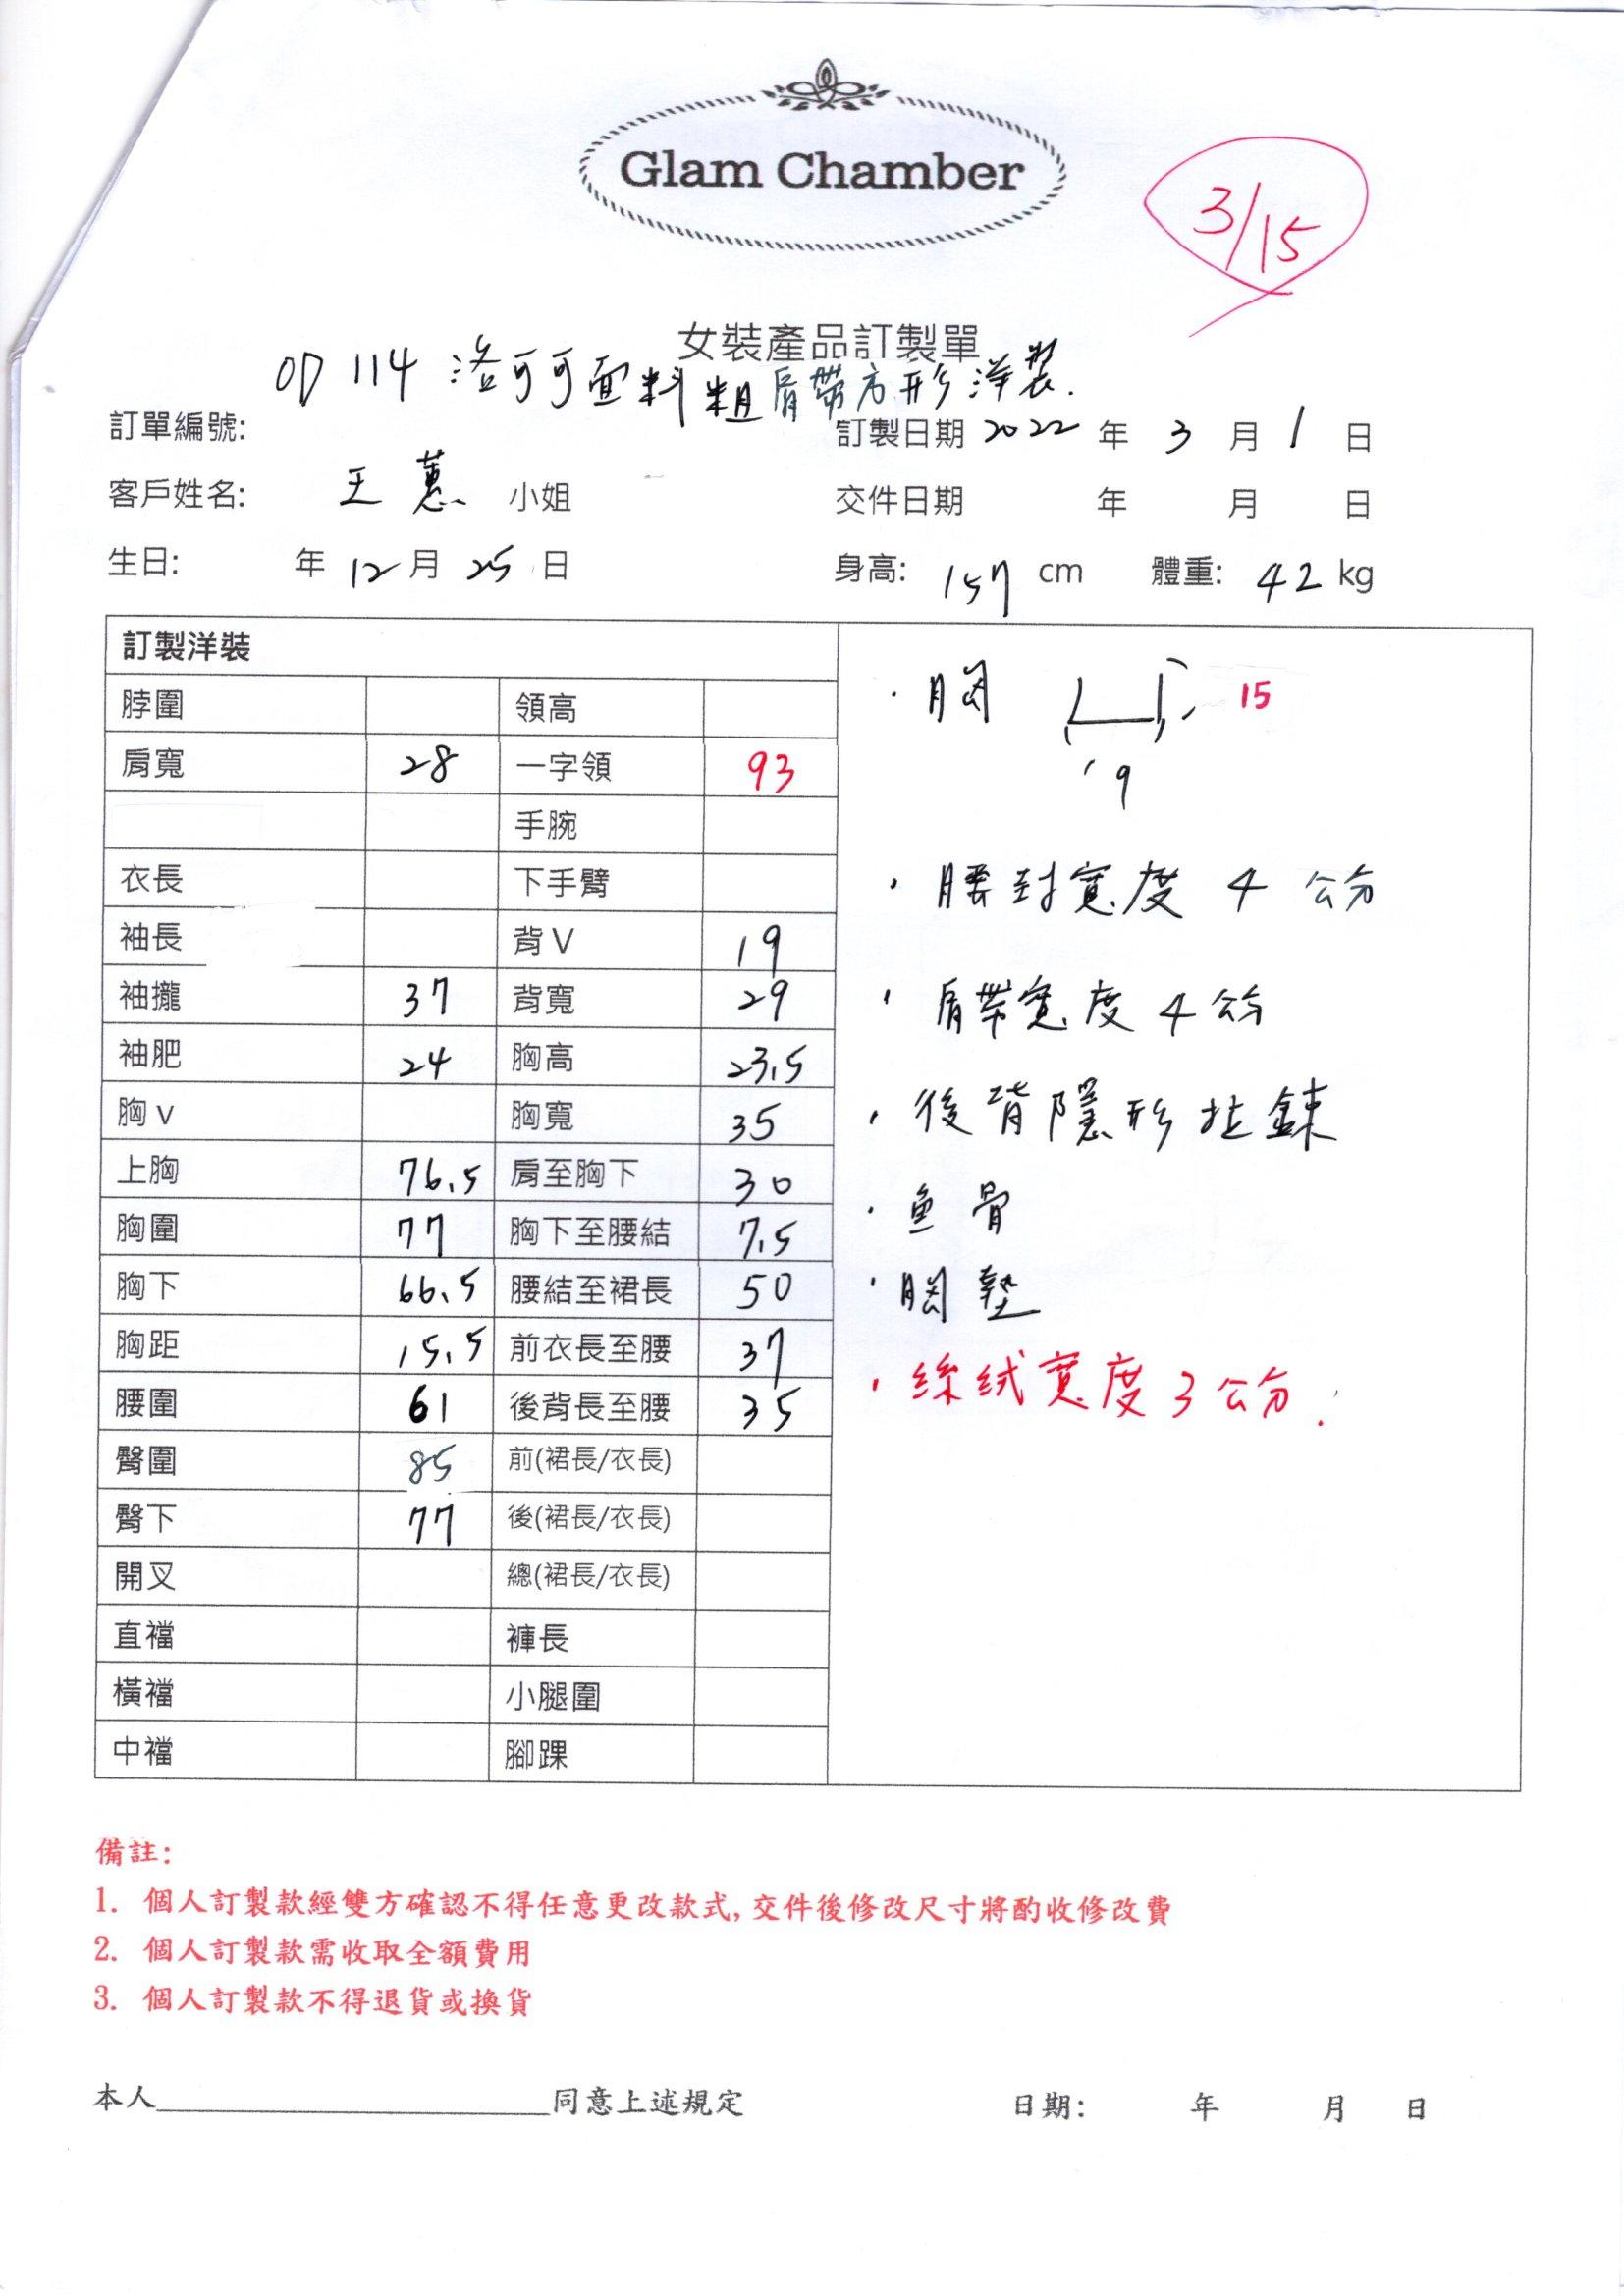 Glam Chamber
3/15
女裝產品訂製單
OD 114 洛可可面料粗肩帶方形洋裝.
訂單編號: 訂製日期 2022 年 3 月 1 日
客戶姓名: 王蕙 小姐 交件日期 年 月 日
生日: 年 12 月 25 日 身高: 157 cm 體重: 42 kg
訂製洋裝
脖圍 領高
肩寬 28 一字領 93
手腕
衣長 下手臂
袖長 背V 19
袖攏 37 背寬 29
袖肥 24 胸高 23.5
胸v 胸寬 35
上胸 76.5 肩至胸下 30
胸圍 77 胸下至腰結 7.5
胸下 66.5 腰結至裙長 50
胸距 15.5 前衣長至腰 37
腰圍 61 後背長至腰 35
臀圍 85 前(裙長/衣長)
臀下 77 後(裙長/衣長)
開叉 總(裙長/衣長)
直襠 褲長
橫襠 小腿圍
中襠 腳踝
· 胸 15
9
· 腰封寬度 4 公分
· 肩帶寬度 4 公分
· 後背隱形拉鍊
· 魚骨
· 胸墊
· 絲絨寬度 3 公分.
備註:
1. 個人訂製款經雙方確認不得任意更改款式, 交件後修改尺寸將酌收修改費
2. 個人訂製款需收取全額費用
3. 個人訂製款不得退貨或換貨
本人____________________同意上述規定 日期: 年 月 日